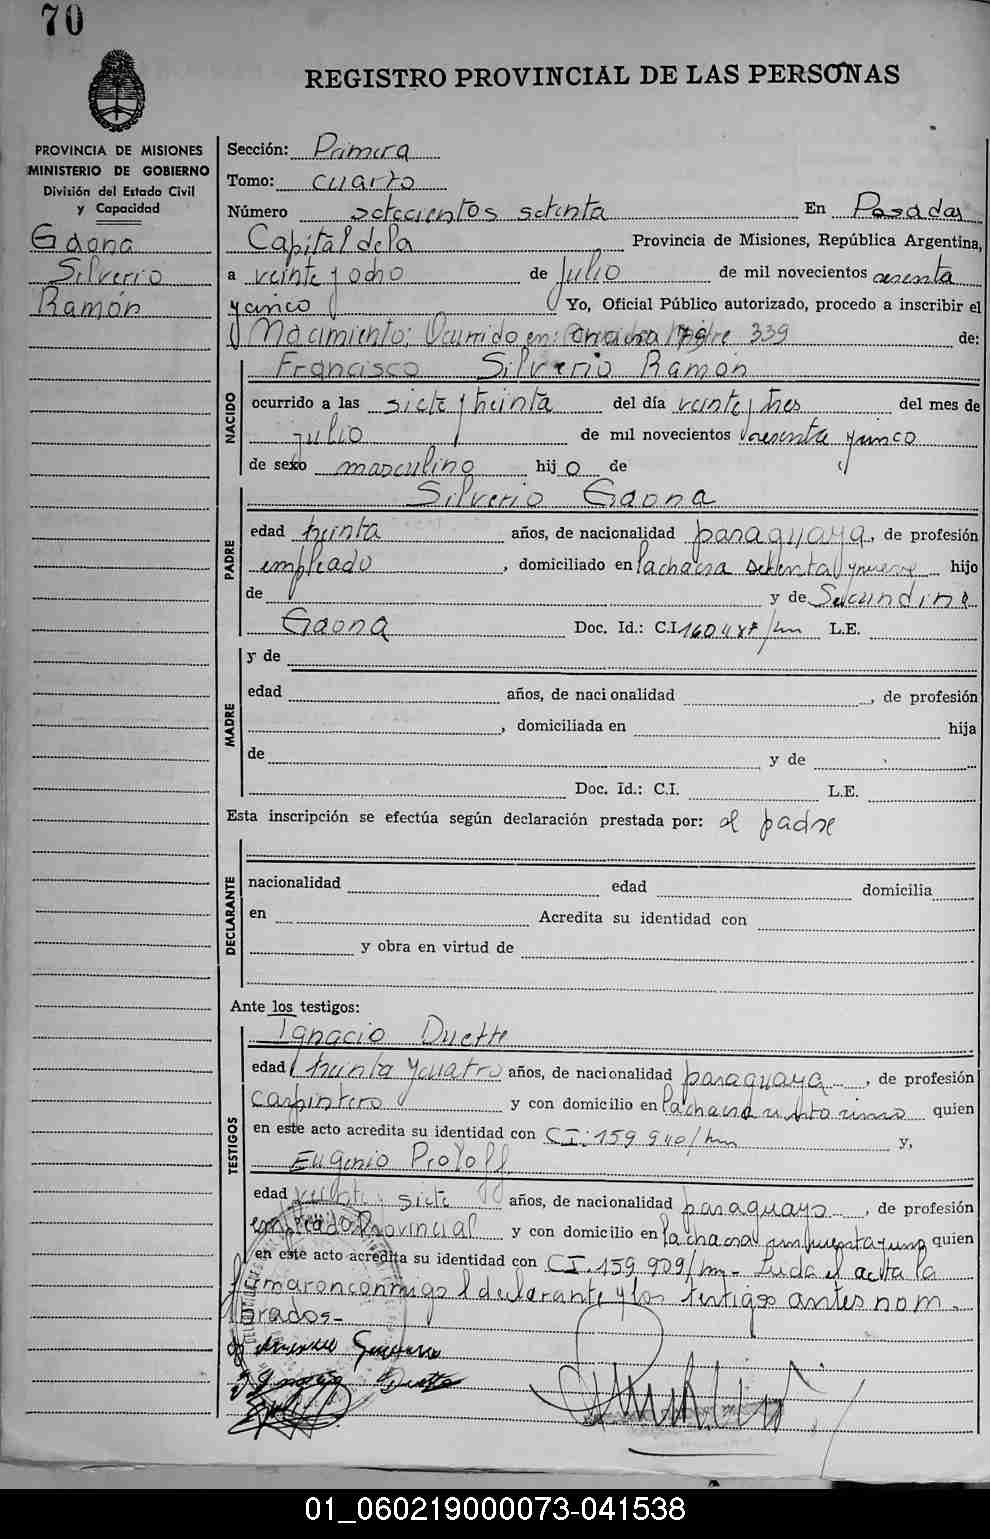 70
REGISTRO PROVINCIAL DE LAS PERSONAS
PROVINCIA DE MISIONES
MINISTERIO DE GOBIERNO
División del Estado Civil
y Capacidad
Gaona
Silverio
Ramón
Sección: Primera
Tomo: cuarto
Número setecientos setenta En Posadas
Capital de la Provincia de Misiones, República Argentina,
a veinte y ocho de Julio de mil novecientos sesenta
y cinco Yo, Oficial Público autorizado, procedo a inscribir el
Nacimiento: Ocurrido en: 339 de:
Francisco Silverio Ramón
NACIDO
ocurrido a las siete y treinta del día veinte y tres del mes de
julio de mil novecientos sesenta y cinco
de sexo masculino hijo de
Silverio Gaona
PADRE
edad treinta años, de nacionalidad paraguaya, de profesión
empleado, domiciliado en la chacra setenta y nueve hijo
de y de Secundina
Gaona Doc. Id.: C.I. L.E.
MADRE
y de
edad años, de nacionalidad , de profesión
, domiciliada en hija
de y de
Doc. Id.: C.I. L.E.
Esta inscripción se efectúa según declaración prestada por: el padre
DECLARANTE
nacionalidad edad domicilia
en Acredita su identidad con
y obra en virtud de
Ante los testigos:
TESTIGOS
Ignacio Duette
edad treinta y cuatro años, de nacionalidad paraguaya, de profesión
carpintero y con domicilio en la chacra quien
en este acto acredita su identidad con CI: 159940/hm y,
Eugenio
edad veinte y siete años, de nacionalidad paraguayo, de profesión
empleado Provincial y con domicilio en la chacra cincuenta y uno quien
en este acto acredita su identidad con CI. 159.909/hm- Leida el acta la
firmaron conmigo el declarante y los testigos antes nom-
brados-
01_060219000073-041538